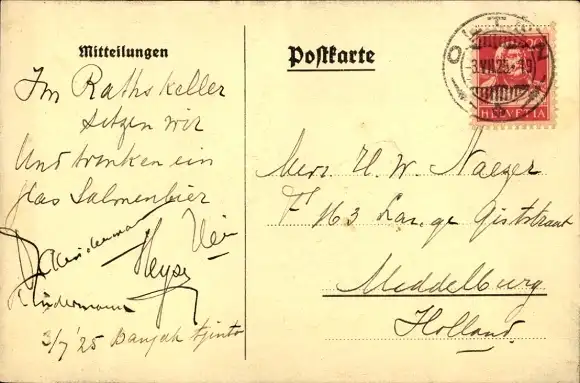 Mitteilungen
Im Raths keller
sitzen wir
Und trinken ein
glas Salmenbier
Heyse
Kindermann
3/7 '25 Banjak tjinta
Postkarte
OLTEN
-3.VII.25.-19
20
HELVETIA
H. W. Naezer
F 163 Lange Giststraat
Middelburg
Holland.